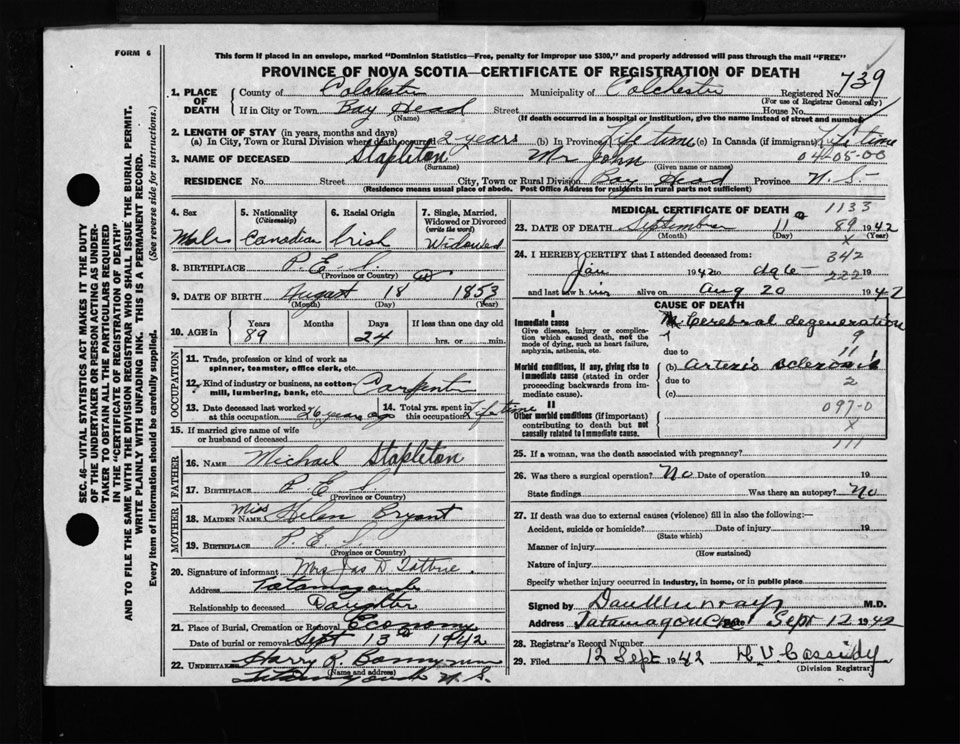 FORM 6
This form if placed in an envelope, marked "Dominion Statistics—Free, penalty for improper use $300," and properly addressed will pass through the mail "FREE"
PROVINCE OF NOVA SCOTIA—CERTIFICATE OF REGISTRATION OF DEATH
739
1. PLACE OF DEATH
County of Colchester Municipality of Colchester Registered No.
(For use of Registrar General only)
If in City or Town Bay Head Street House No.
(Name) (If death occurred in a hospital or institution, give the name instead of street and number)
2. LENGTH OF STAY (in years, months and days)
(a) In City, Town or Rural Division where death occurred 2 years (b) In Province Life time (c) In Canada (if immigrant) Life time
3. NAME OF DECEASED Stapleton Mr John 04-05-00
(Surname) (Given name or names)
RESIDENCE No. Street City, Town or Rural Division Bay Head Province N.S.
(Residence means usual place of abode. Post Office Address for residents in rural parts not sufficient)
4. Sex
Male
5. Nationality
(Citizenship)
Canadian
6. Racial Origin
Irish
7. Single, Married, Widowed or Divorced
(write the word)
Widowed
8. BIRTHPLACE P.E.I.
(Province or Country)
9. DATE OF BIRTH August 18 1853
(Month) (Day) (Year)
10. AGE in Years Months Days If less than one day old
89 24 hrs. or min.
OCCUPATION
11. Trade, profession or kind of work as
spinner, teamster, office clerk, etc.
12. Kind of industry or business, as cotton-
mill, lumbering, bank, etc. Carpenter
13. Date deceased last worked at this occupation 26 years ago
14. Total yrs. spent in this occupation Lifetime
15. If married give name of wife
or husband of deceased
FATHER
16. NAME Michael Stapleton
17. BIRTHPLACE P.E.I.
(Province or Country)
MOTHER
18. MAIDEN NAME Miss Helen Bryant
19. BIRTHPLACE P.E.I.
(Province or Country)
20. Signature of informant Mrs Jas D Tattrie
Address Tatamagouche
Relationship to deceased Daughter
21. Place of Burial, Cremation or Removal Economy
Date of burial or removal Sept 13 1942
22. UNDERTAKER Harry R. Bonnyman
(Name and address)
Tatamagouche N.S.
MEDICAL CERTIFICATE OF DEATH 1133
23. DATE OF DEATH September 11 89 1942
(Month) (Day) x (Year)
24. I HEREBY CERTIFY that I attended deceased from: 342
Jan 1942 to date 222 19
and last saw him alive on Aug 20 1942
CAUSE OF DEATH
I
Immediate cause
Give disease, injury or complication which caused death, not the mode of dying, such as heart failure, asphyxia, asthenia, etc.
Cerebral degeneration
9
due to 11
Morbid conditions, if any, giving rise to immediate cause (stated in order proceeding backwards from immediate cause).
(b) Arterio sclerosis
due to 2
(c)
II
Other morbid conditions (if important) contributing to death but not causally related to immediate cause.
097-0
x
111
25. If a woman, was the death associated with pregnancy?
26. Was there a surgical operation? No Date of operation 19
State findings Was there an autopsy? No
27. If death was due to external causes (violence) fill in also the following:—
Accident, suicide or homicide? Date of injury 19
(State which)
Manner of injury
(How sustained)
Nature of injury
Specify whether injury occurred in industry, in home, or in public place
Signed by Dan Murray M.D.
Address Tatamagouche Date Sept 12 1942
28. Registrar's Record Number
29. Filed 12 Sept 1942 H. V. Cassidy
(Division Registrar)
SEC. 46—VITAL STATISTICS ACT MAKES IT THE DUTY
OF THE UNDERTAKER OR PERSON ACTING AS UNDER-
TAKER TO OBTAIN ALL THE PARTICULARS REQUIRED
IN THE "CERTIFICATE OF REGISTRATION OF DEATH"
AND TO FILE THE SAME WITH THE DIVISION REGISTRAR WHO SHALL ISSUE THE BURIAL PERMIT.
WRITE PLAINLY WITH UNFADING INK. THIS IS A PERMANENT RECORD.
Every item of information should be carefully supplied. (See reverse side for instructions.)